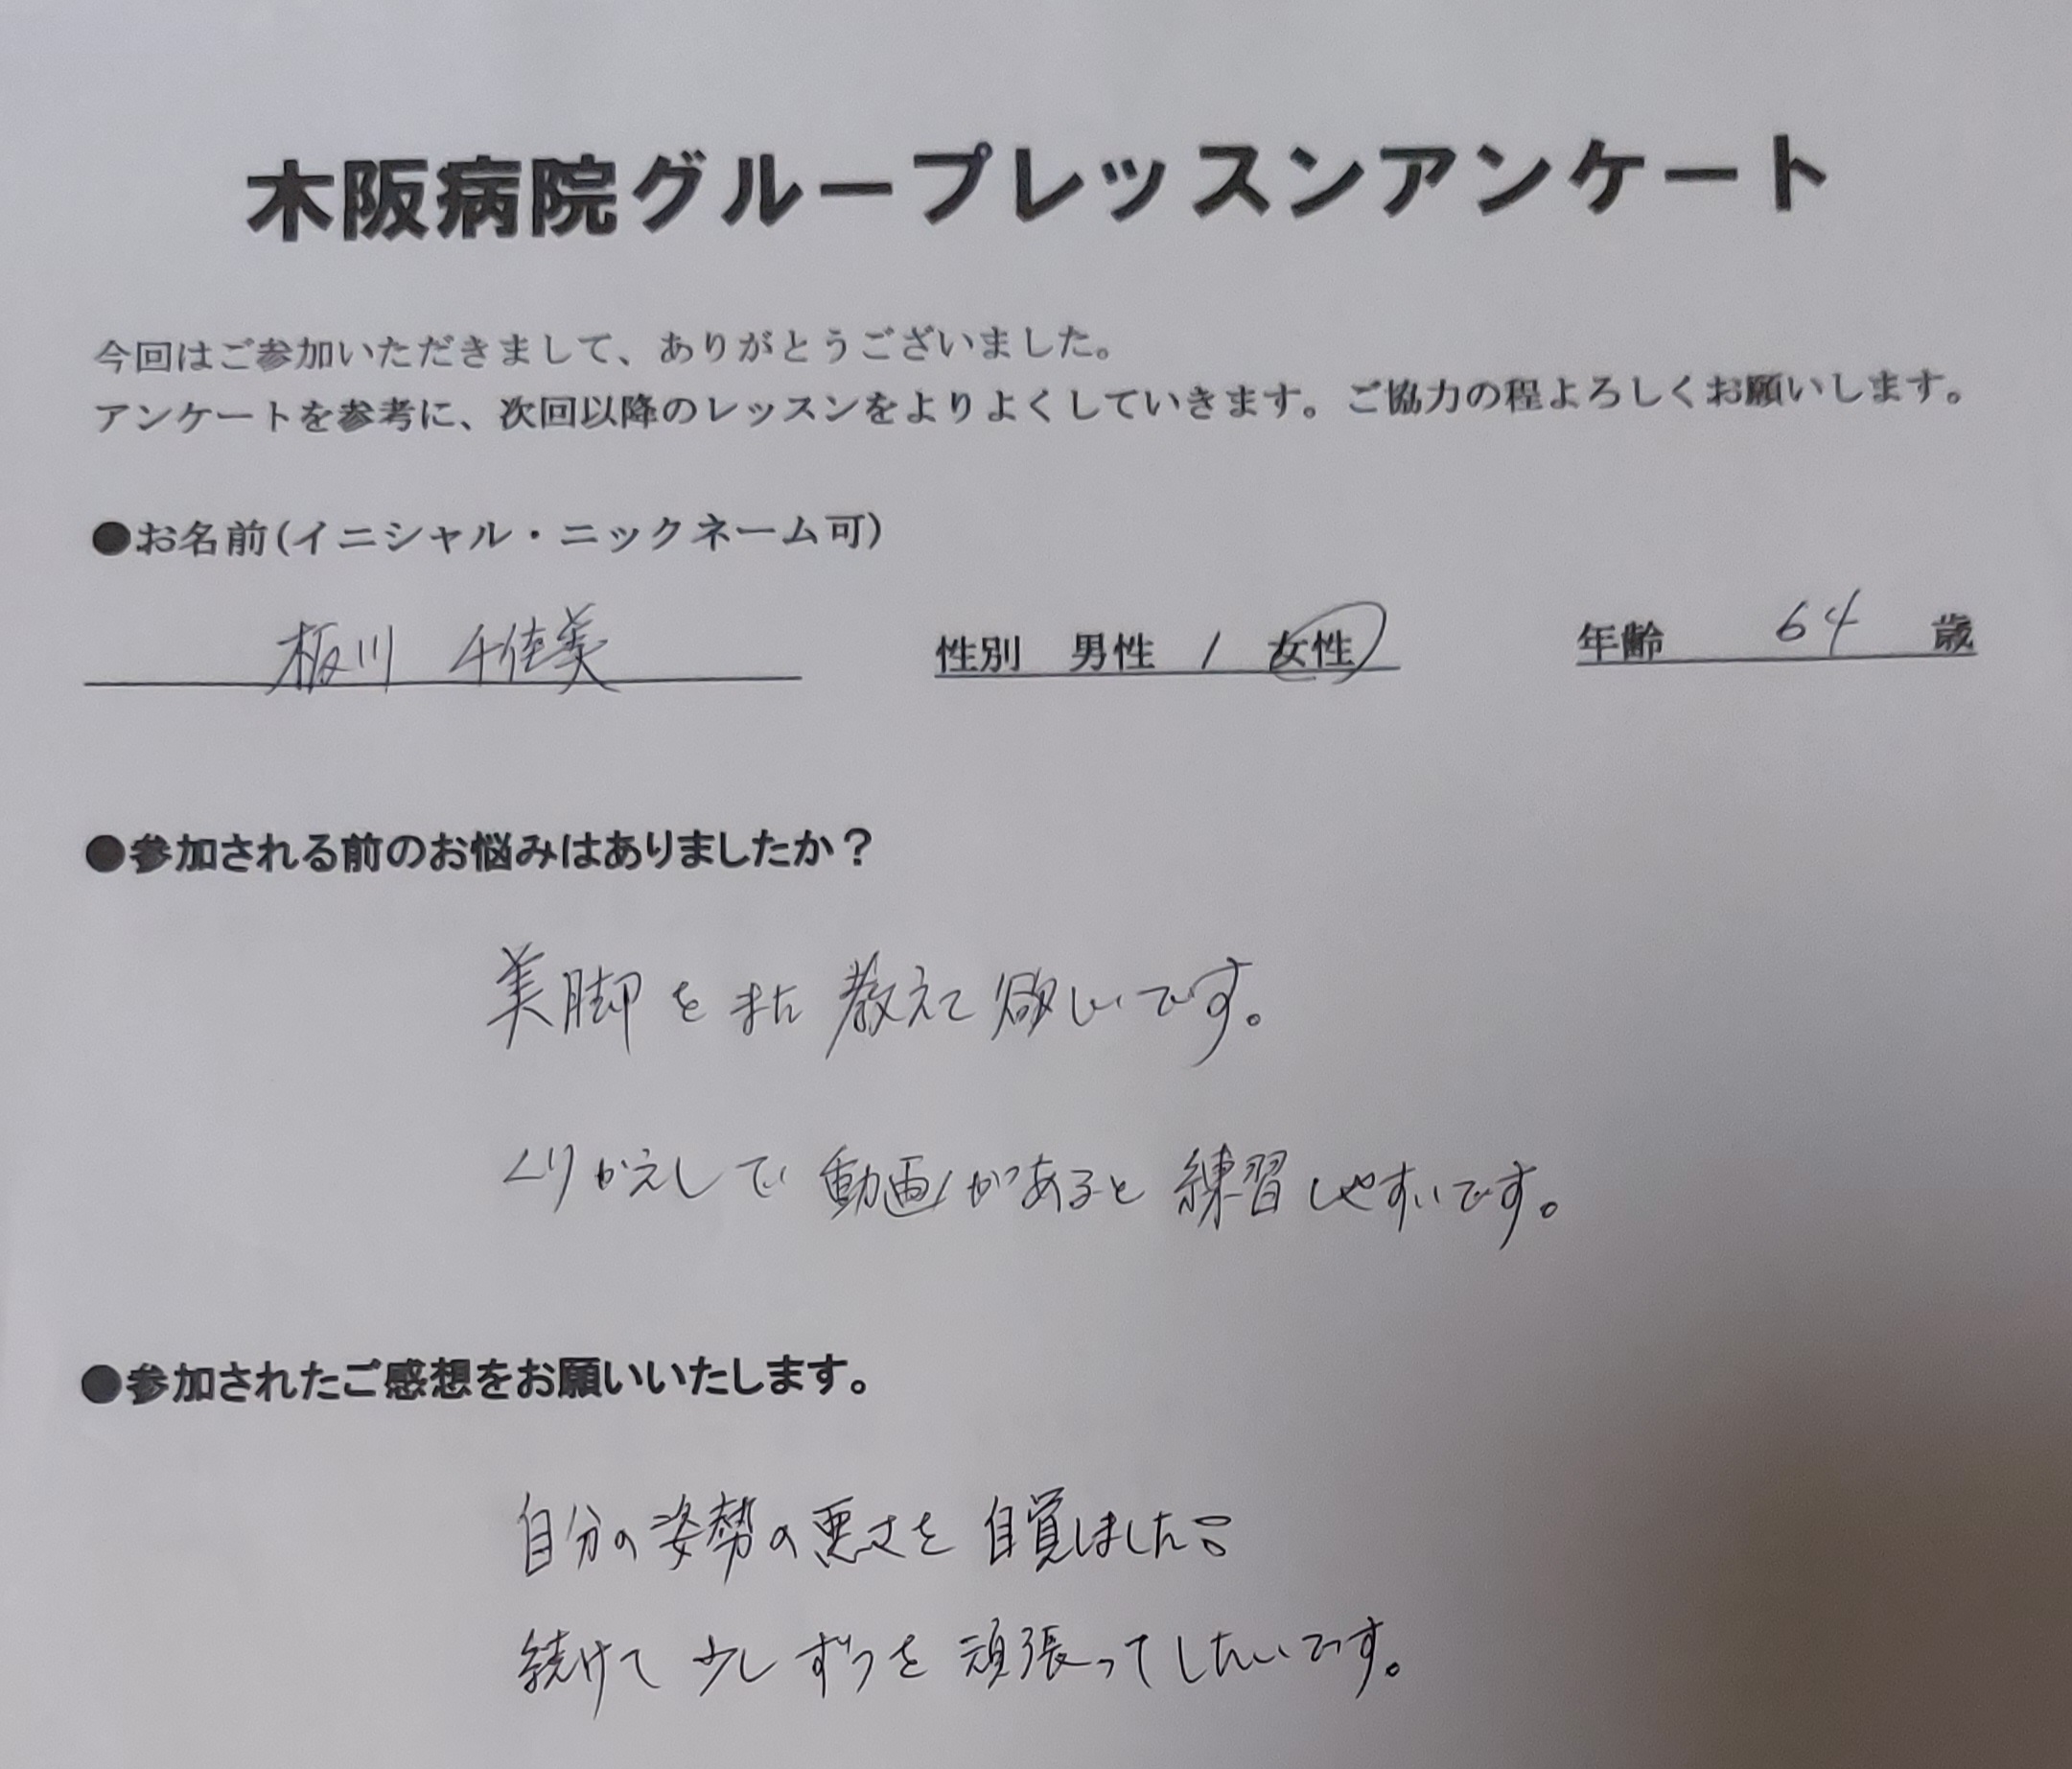 木阪病院グループレッスンアンケート
今回はご参加いただきまして、ありがとうございました。
アンケートを参考に、次回以降のレッスンをよりよくしていきます。ご協力の程よろしくお願いします。
●お名前(イニシャル・ニックネーム可)
板川 千佳美 性別 男性 / 女性 年齢 64 歳
●参加される前のお悩みはありましたか？
美脚をまた教えて欲しいです。
くりかえしで動画があると練習しやすいです。
●参加されたご感想をお願いいたします。
自分の姿勢の悪さを自覚しました
続けて少しずつを頑張ってしたいです。